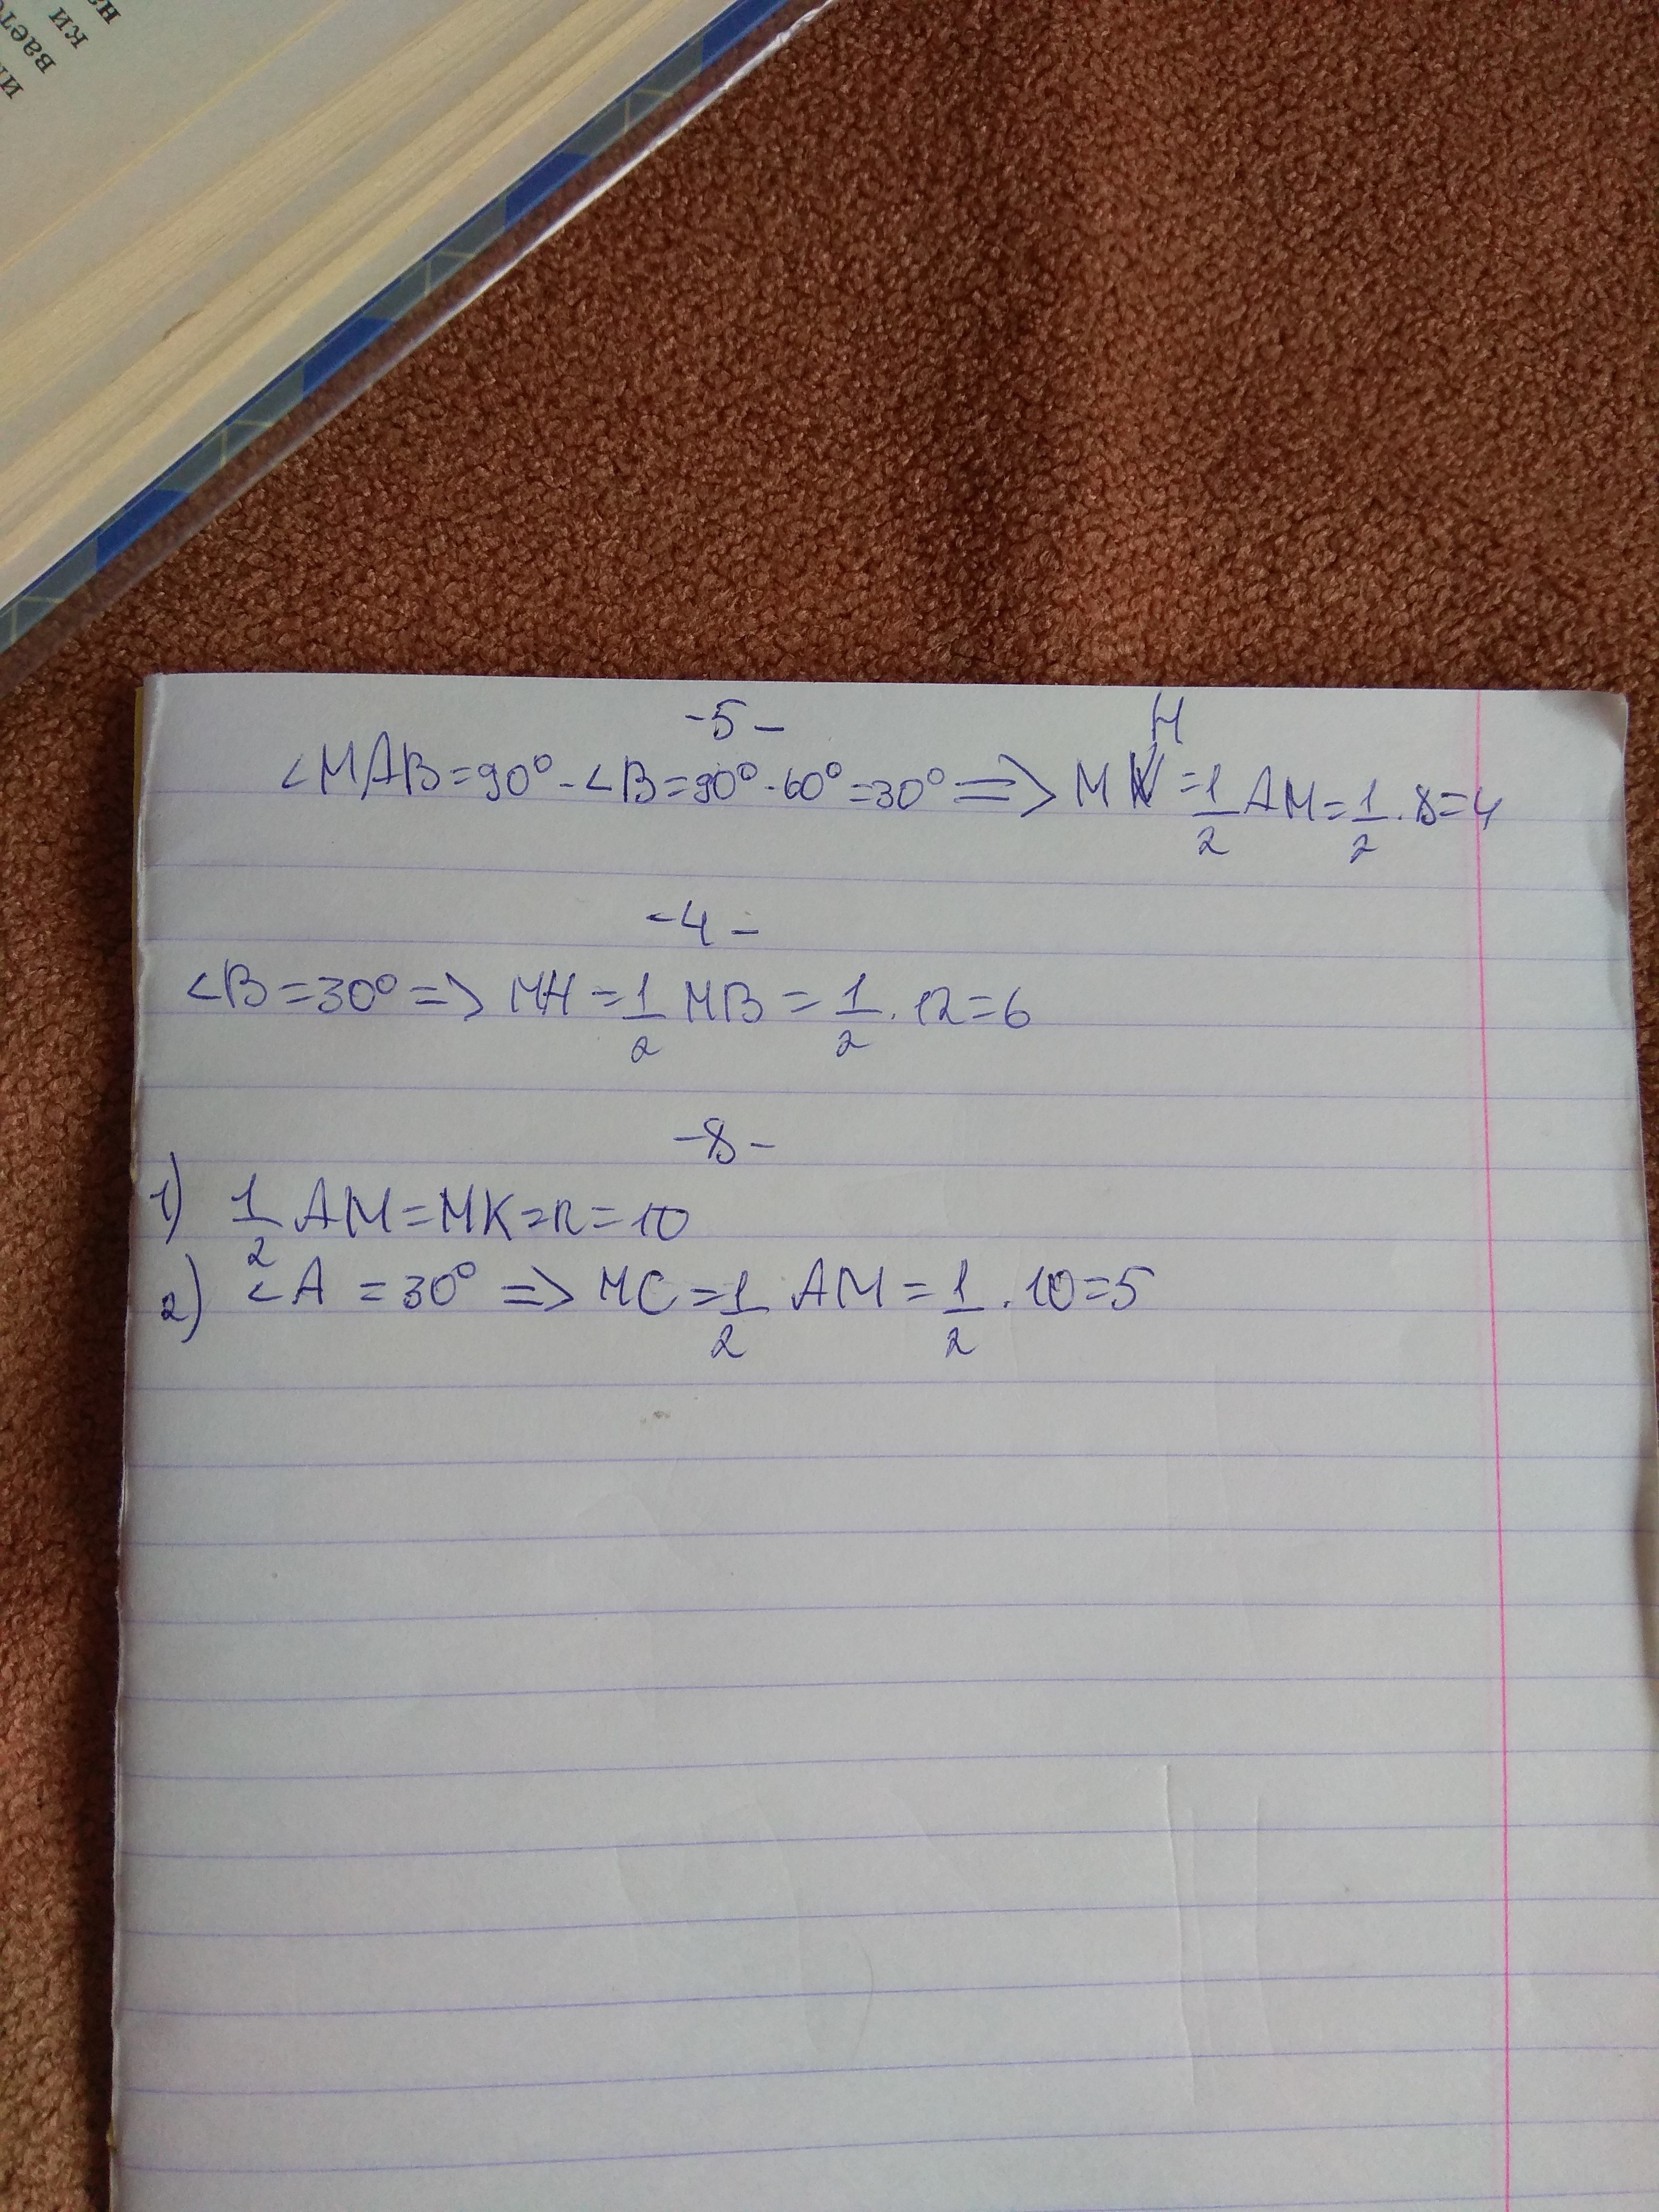 на
ки
вает
-5-
∠MAB=90°-∠B=90°-60°=30° => MH=1/2 AM=1/2·8=4
-4-
∠B=30° => MH=1/2 MB=1/2·12=6
-8-
1) 1/2 AM=MK=R=10
2) ∠A=30° => MC=1/2 AM=1/2·10=5